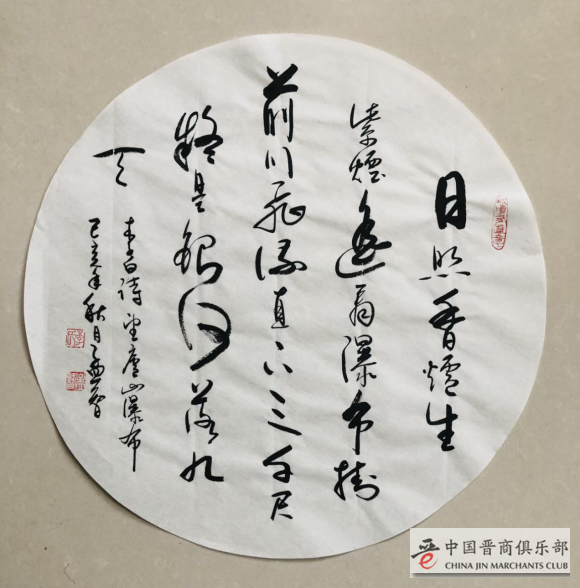 日照香爐生
紫煙遙看瀑布掛
前川飛流直下三千尺
疑是銀河落九
天
李白詩望廬山瀑布
己亥年秋月
中国晋商俱乐部
CHINA JIN MARCHANTS CLUB